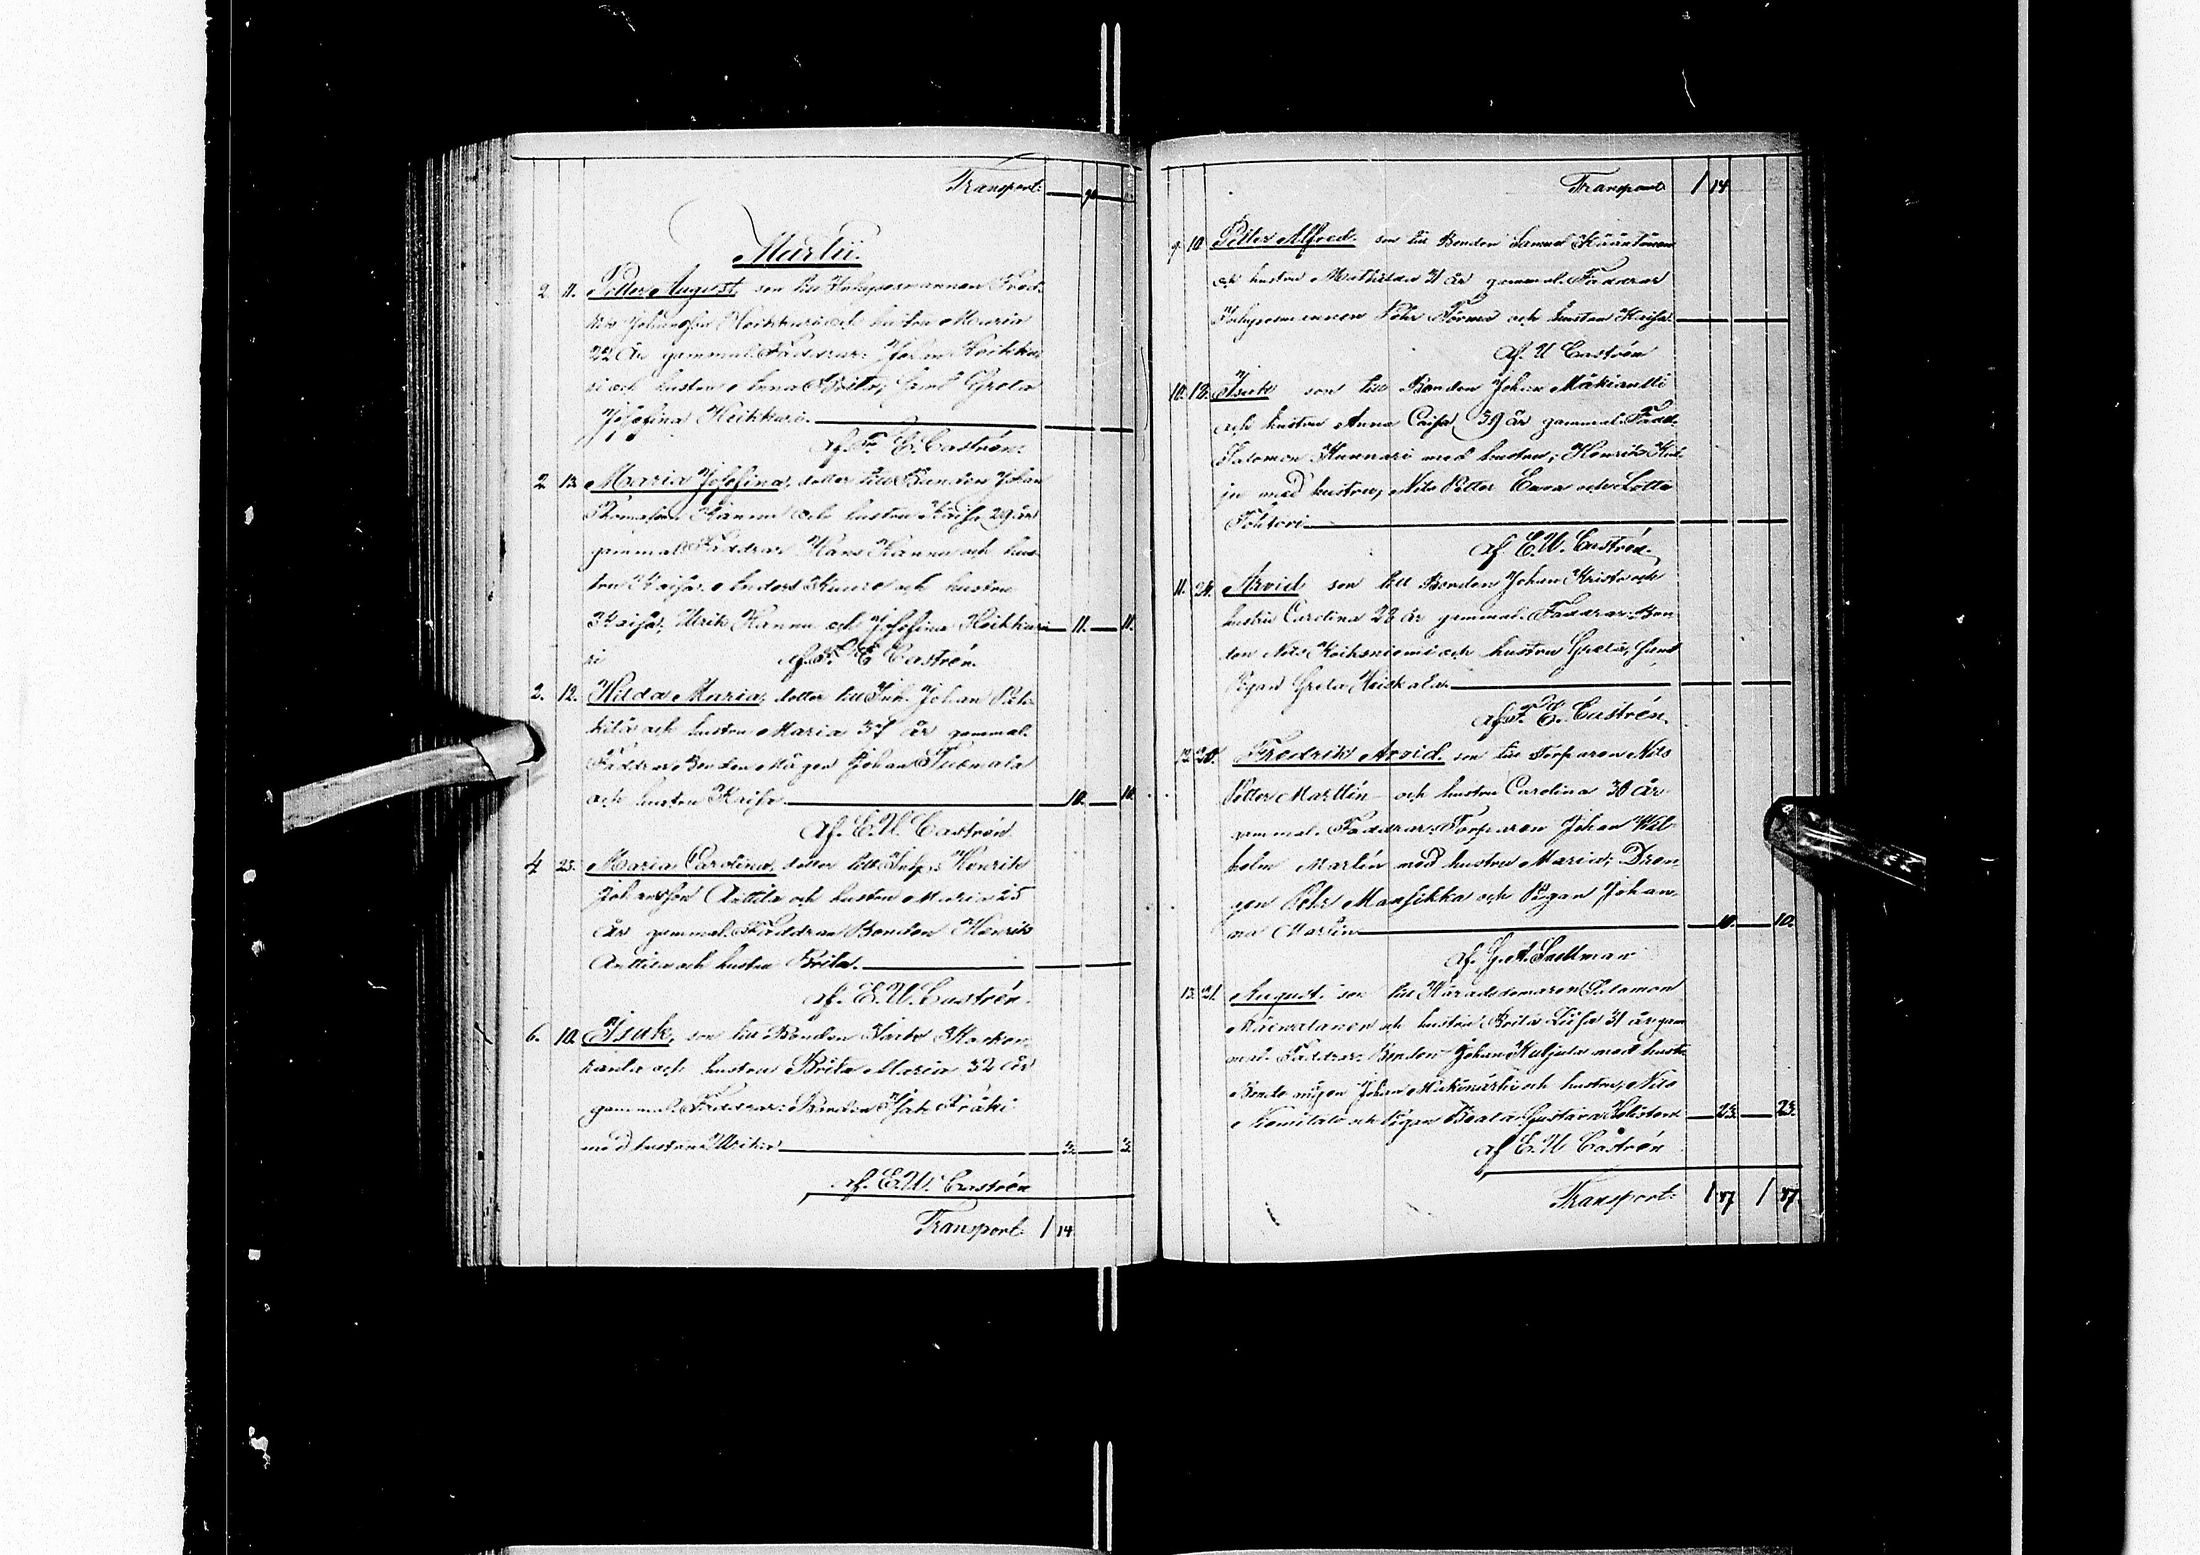 Transport: 9
Martii.
2. 11. Petter August, son till Inhysesmannen Fred-
rik Johansson Heikkuri och hustru Maria
22 år gammal. Faddrar: Johan Heikku-
ri och hustru Anna Brita, samt Greta
Josefina Heikkuri.
af F. E. Castrén.
2. 13. Maria Josefina, dotter till Bonden Johan
Thomasson Kannu och hustru Kaisa 29 år
gammal. Faddrar Hans Kannu och hus-
tru Kaisa, Anders Kuure och hustru
Kaisa, Ulrik Kannu och Josefina Heikkuri 11. 11.
ri af F. E Castrén.
2. 12. Hilda Maria, dotter till Inh. Johan
och hustru Maria 37 år gammal.
Faddrar Bonden Mågen Johan Tuomala
och hustru Kaisa. 10. 10.
af. E. W. Castrén.
4 25. Maria Carolina, dotter till Inhs: Henrik
Johansson Anttila och hustru Maria 25
år gammal. Faddrar Bonden Henrik
Anttila och hustru Brita.
af. E. W. Castrén.
6. 10. Isak, son till Bonden
och hustru Brita Maria 32 år
gammal. Faddrar: Bonden Isak Fräki
med hustru Ulrika 3. 3.
af. E. W. Castrén
Transport: 1 14
Transport 1 14
9. 10. Petter Alfred. son till Bonden Samuel
och hustru Mathilda 31 år gammal. Faddrar
Inhysesmannen Pehr Törmä och hustru Kaisa.
af. E. W Castrén
10. 18. Isak son till Bonden Johan Mäkiantti
och hustru Anna Caisa 39 år gammal. Fadd.
Salomon Kunnari med hustru; Henrik
med hustru, Nils Petter Enva och Lotta
Tohtori.
af E. W. Castrén.
11. 24. Arvid son till Bonden Johan Kristo och
hustru Carolina 28 år gammal. Faddrar: Bon-
den Nils Koiksniemi och hustru Greta, samt
Pigan Greta Heiskala.
af F. E. Castrén.
12. 20. Fredrik Arvid. son till Torparen Nils
Petter Marttin och hustru Carolina 30 år
gammal. Faddrar: Torparen Johan Wil-
helm Martin med hustru Maria, Dren-
gen Pehr Mansikka och Pigan Johan-
na Martin 10. 10.
af. G. A. Snellman
13. 21. August. son till Häradsdomaren Salomon
och hustru Brita Lisa 31 år gam-
mal. Faddrar: Bonden Johan Kuljula med hust.
Bonde mågen Johan och hustru, Nils
och Pigan Beata Gustava 23. 23.
af E. W Castrén
Transport: 1 47 1 47.